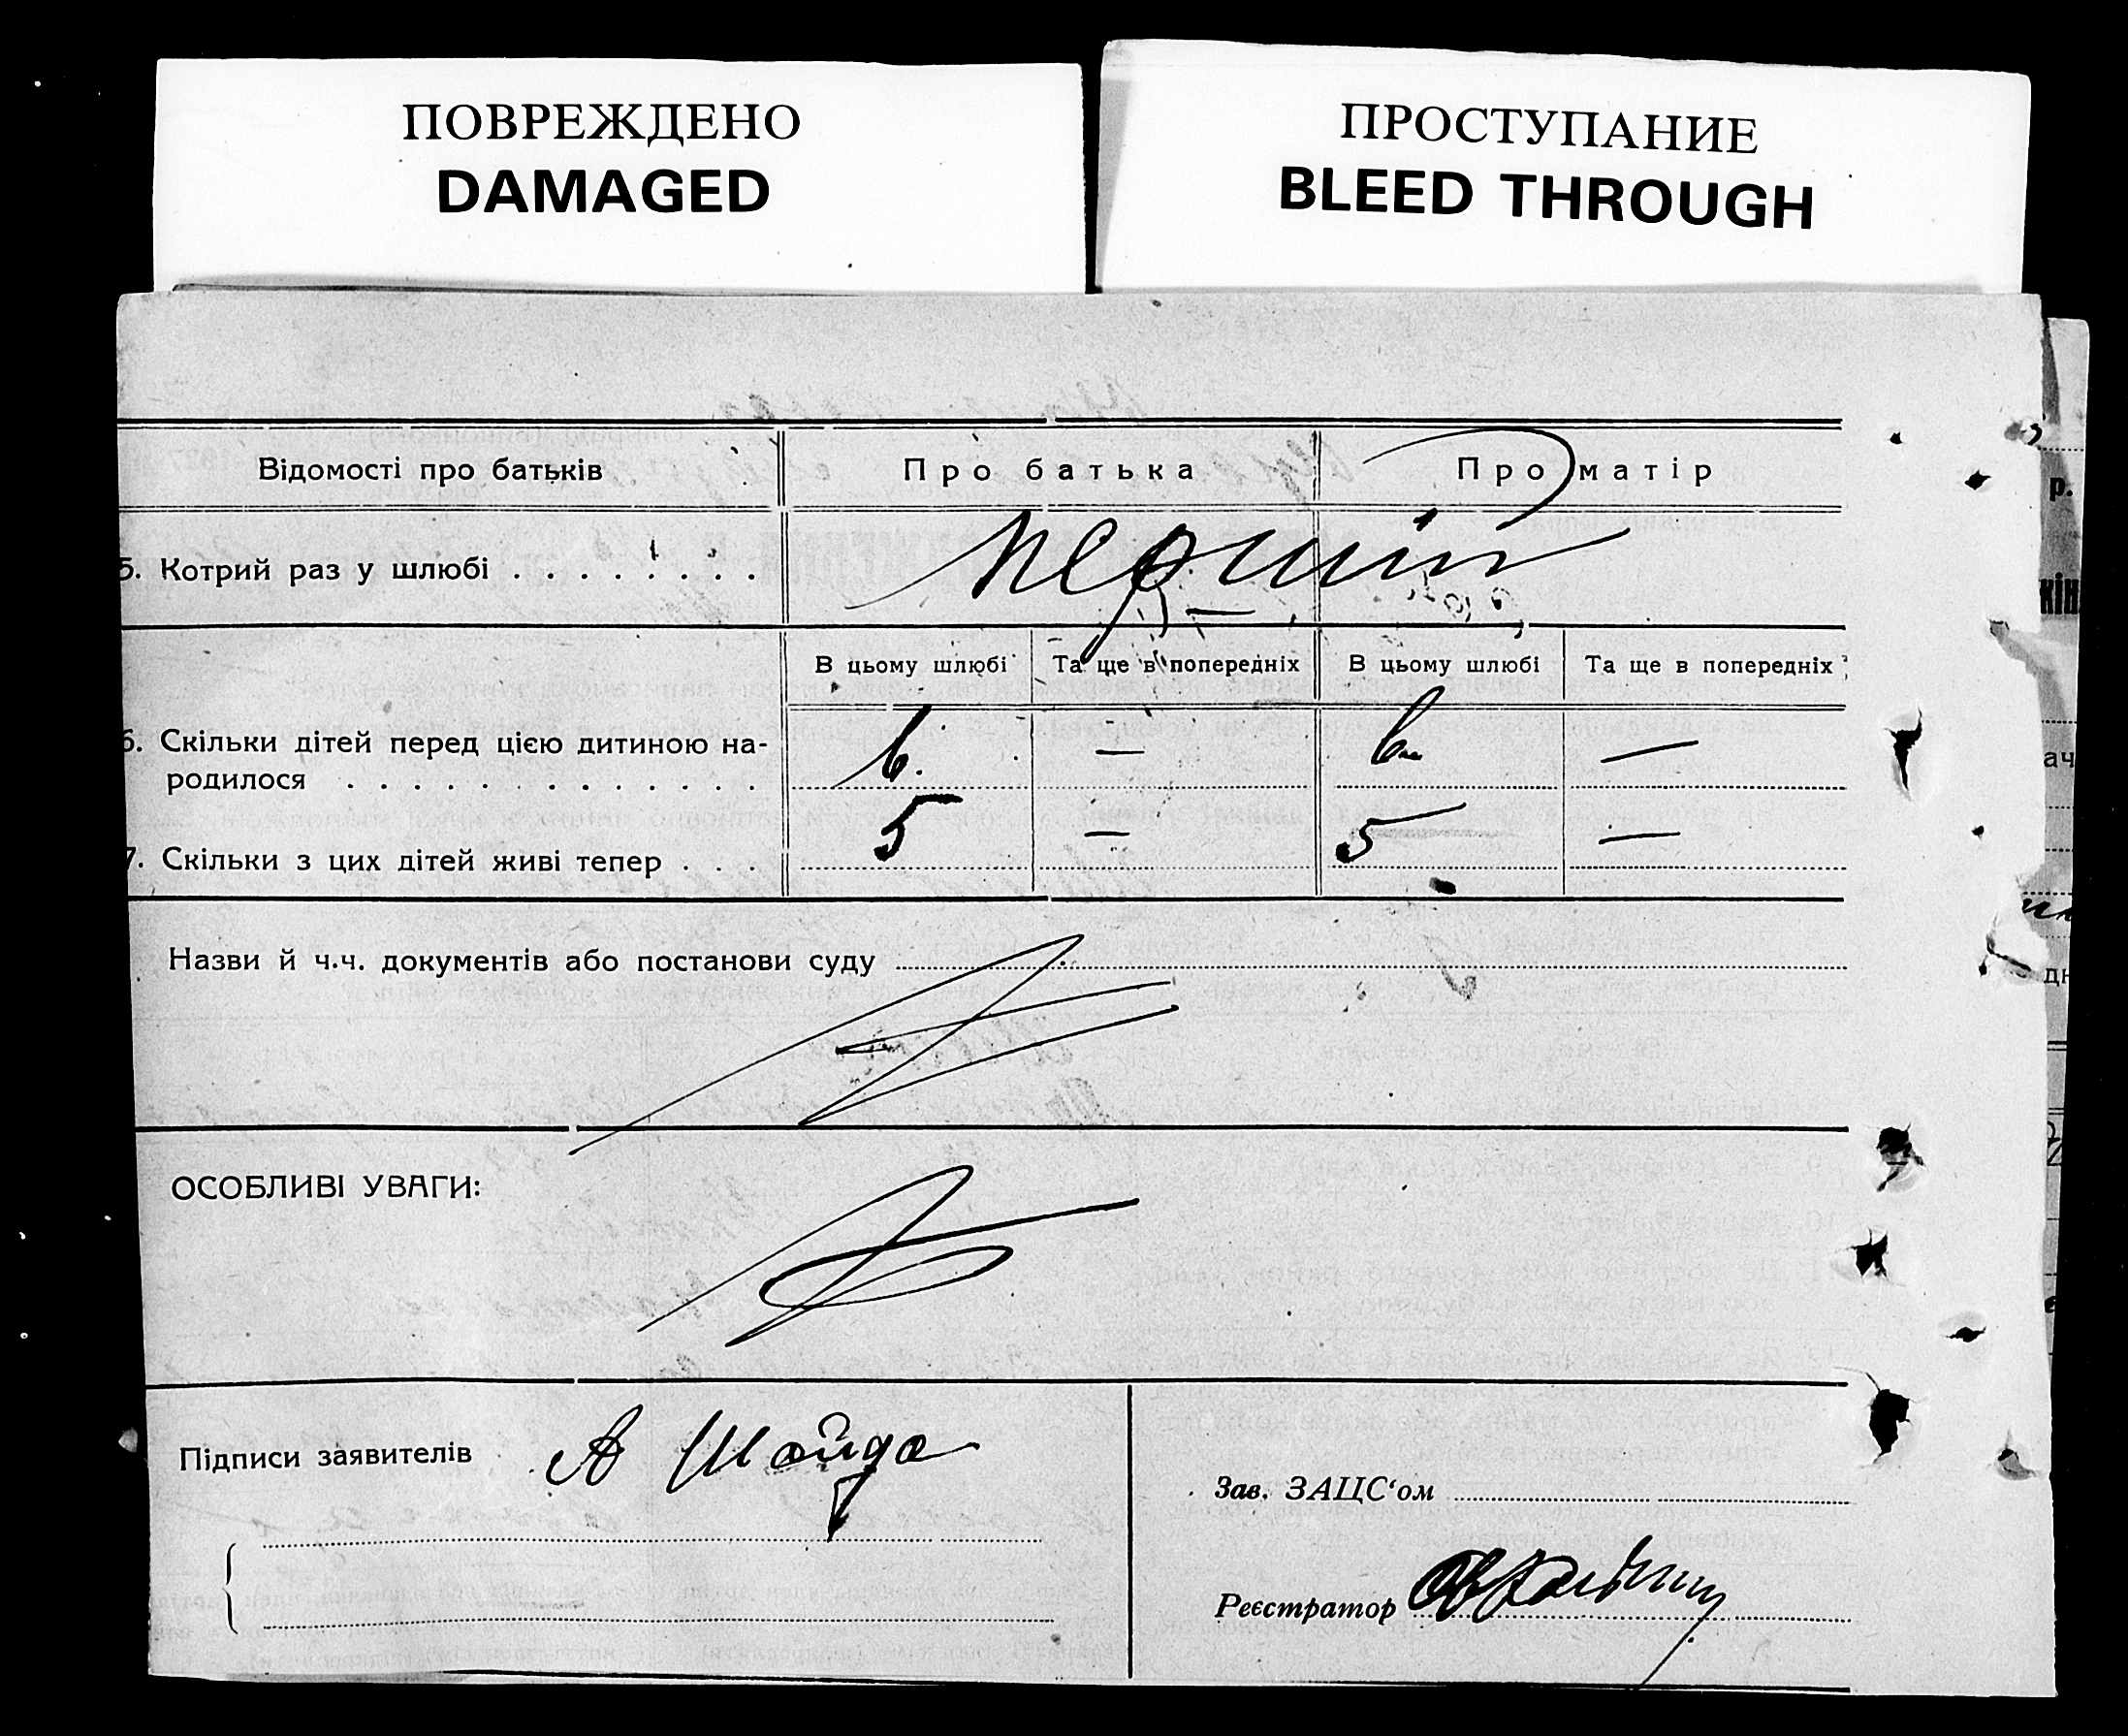 ПОВРЕЖДЕНО
DAMAGED
ПРОСТУПАНИЕ
BLEED THROUGH
Відомості про батьків
Про батька
Про матір
5. Котрий раз у шлюбі
перший
В цьому шлюбі
Та ще в попередніх
В цьому шлюбі
Та ще в попередніх
6. Скільки дітей перед цією дитиною на-
родилося
6. — 6 —
7. Скільки з цих дітей живі тепер
5 — 5 —
Назви й ч.ч. документів або постанови суду
ОСОБЛИВІ УВАГИ:
Підписи заявителів А Шайда
Зав. ЗАЦС‘ом
Реєстратор